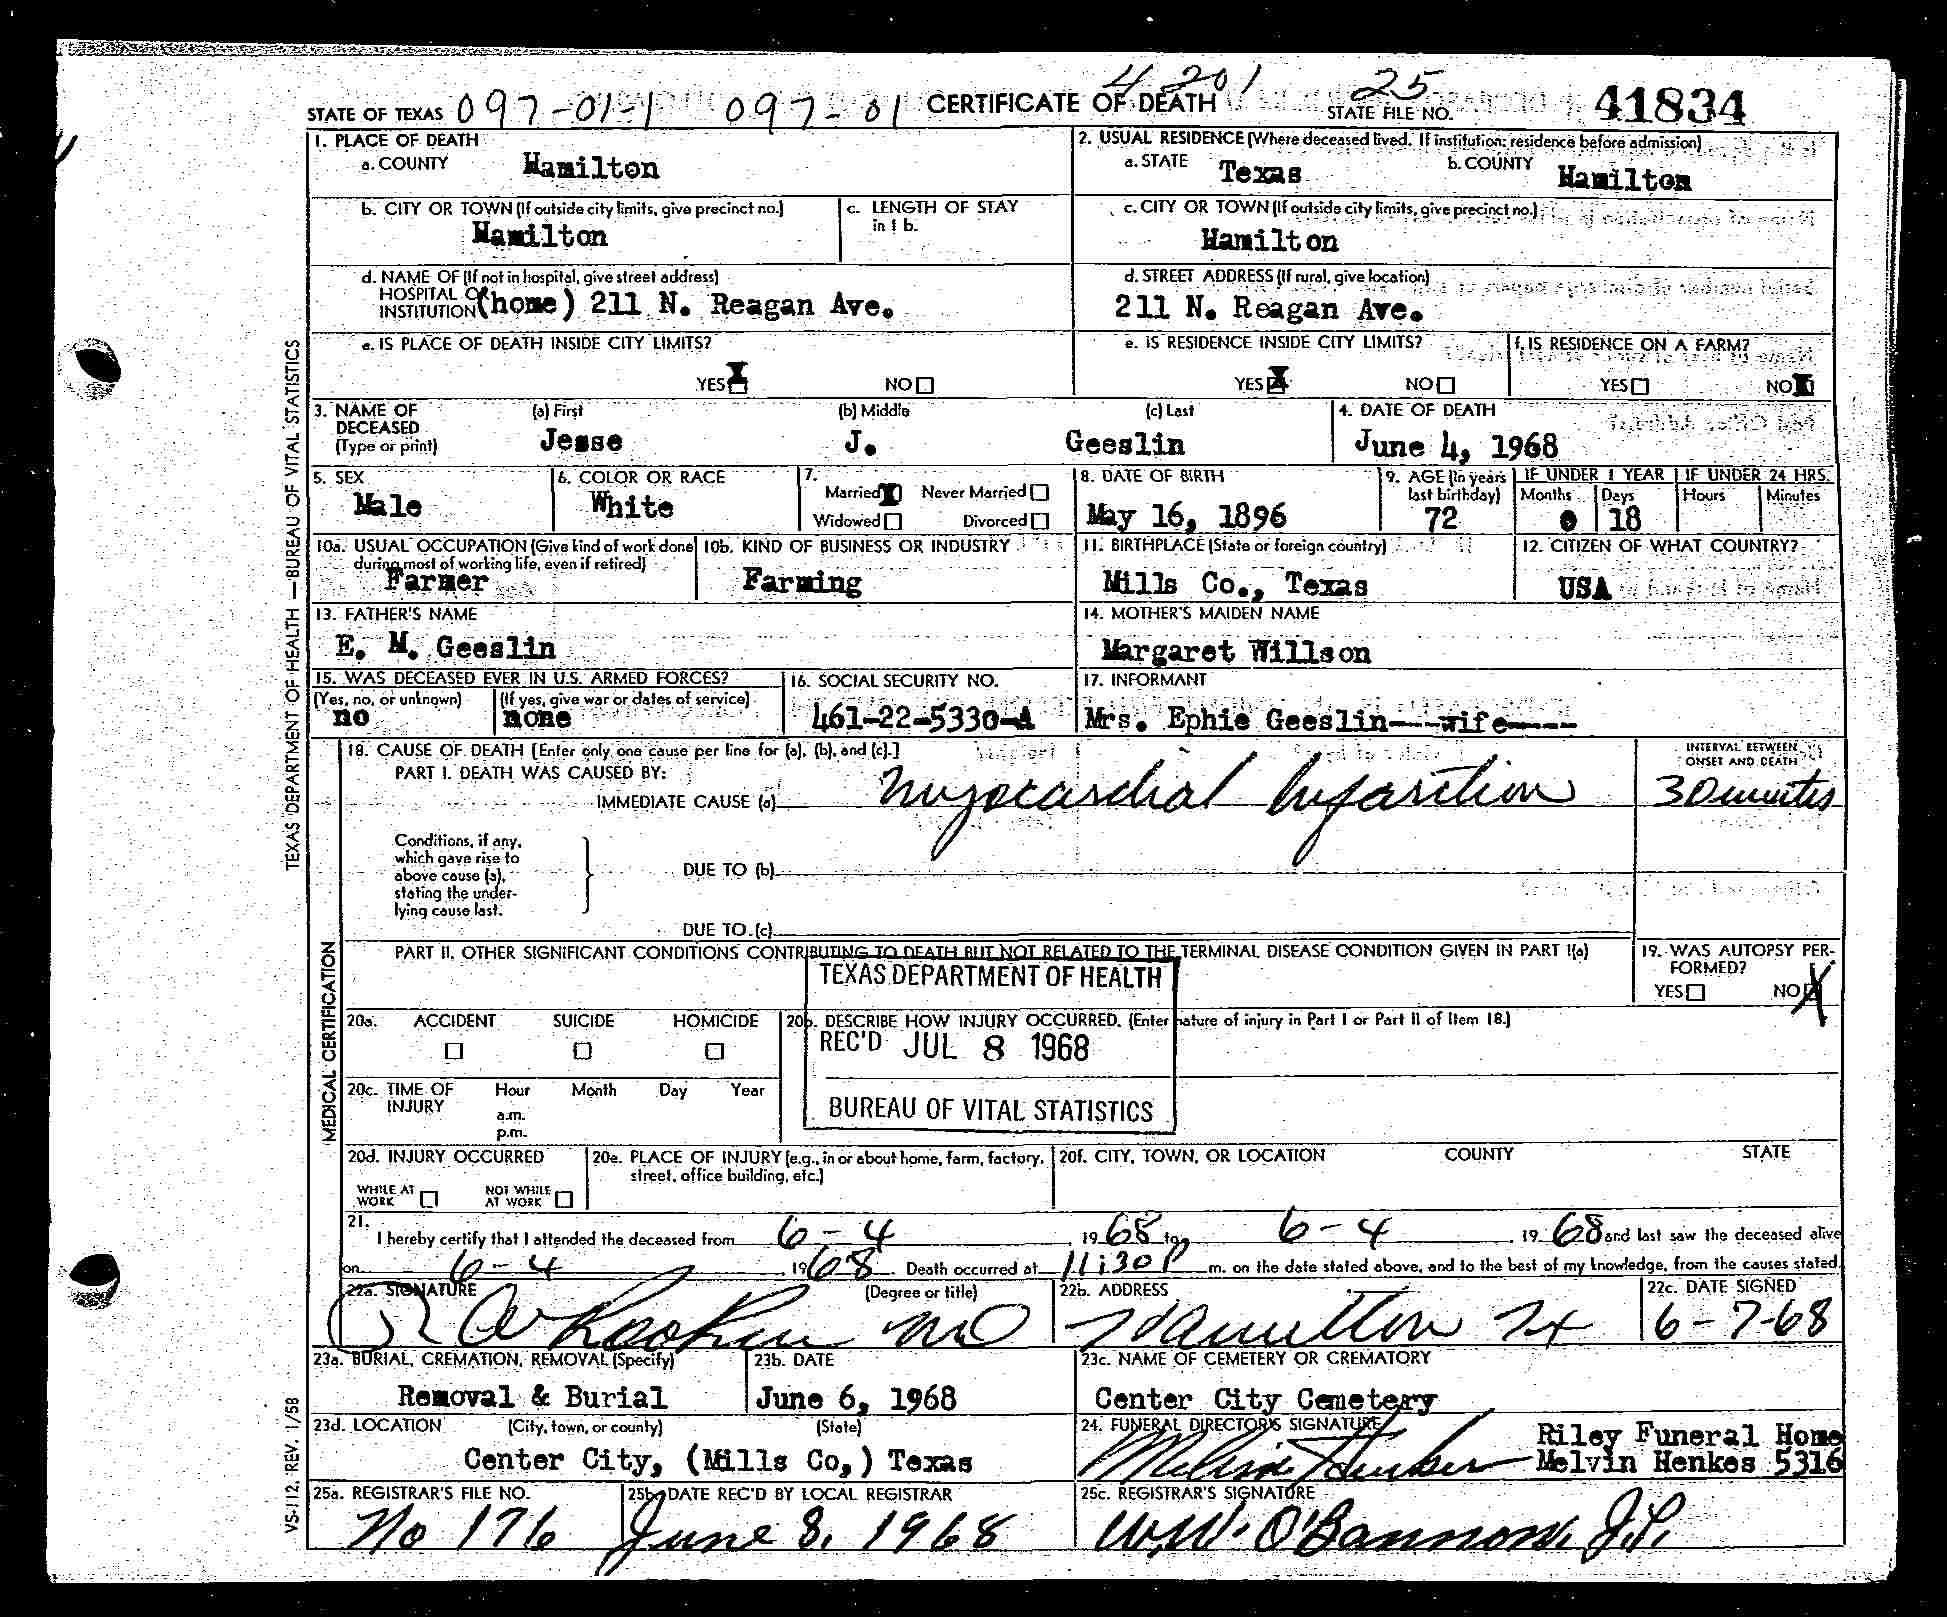 4201 25
STATE OF TEXAS 097-01-1 097-01 CERTIFICATE OF DEATH STATE FILE NO. 41834
1. PLACE OF DEATH
a. COUNTY Hamilton
2. USUAL RESIDENCE (Where deceased lived. If institution: residence before admission)
a. STATE Texas b. COUNTY Hamilton
b. CITY OR TOWN (If outside city limits, give precinct no.) c. LENGTH OF STAY in 1 b.
Hamilton
c. CITY OR TOWN (If outside city limits, give precinct no.)
Hamilton
d. NAME OF (If not in hospital, give street address)
HOSPITAL OR
INSTITUTION (home) 211 N. Reagan Ave.
d. STREET ADDRESS (If rural, give location)
211 N. Reagan Ave.
e. IS PLACE OF DEATH INSIDE CITY LIMITS?
YES X NO
e. IS RESIDENCE INSIDE CITY LIMITS? f. IS RESIDENCE ON A FARM?
YES X NO YES NO X
3. NAME OF DECEASED (Type or print) (a) First (b) Middle (c) Last 4. DATE OF DEATH
Jesse J. Geeslin June 4, 1968
5. SEX 6. COLOR OR RACE 7. Married X Never Married Widowed Divorced 8. DATE OF BIRTH 9. AGE (In years last birthday) IF UNDER 1 YEAR Months Days IF UNDER 24 HRS. Hours Minutes
Male White May 16, 1896 72 0 18
10a. USUAL OCCUPATION (Give kind of work done during most of working life, even if retired) 10b. KIND OF BUSINESS OR INDUSTRY 11. BIRTHPLACE (State or foreign country) 12. CITIZEN OF WHAT COUNTRY?
Farmer Farming Mills Co., Texas USA
13. FATHER'S NAME 14. MOTHER'S MAIDEN NAME
E. M. Geeslin Margaret Willson
15. WAS DECEASED EVER IN U.S. ARMED FORCES? 16. SOCIAL SECURITY NO. 17. INFORMANT
(Yes, no, or unknown) (If yes, give war or dates of service)
no none 461-22-5330-A Mrs. Ephie Geeslin---wife----
18. CAUSE OF DEATH [Enter only one cause per line for (a), (b), and (c).] INTERVAL BETWEEN ONSET AND DEATH
PART I. DEATH WAS CAUSED BY:
IMMEDIATE CAUSE (a) Myocardial Infarction 30 minutes
Conditions, if any, which gave rise to above cause (a), stating the underlying cause last.
DUE TO (b)
DUE TO (c)
PART II. OTHER SIGNIFICANT CONDITIONS CONTRIBUTING TO DEATH BUT NOT RELATED TO THE TERMINAL DISEASE CONDITION GIVEN IN PART I(a) 19. WAS AUTOPSY PERFORMED?
YES NO X
TEXAS DEPARTMENT OF HEALTH
REC'D JUL 8 1968
BUREAU OF VITAL STATISTICS
20a. ACCIDENT SUICIDE HOMICIDE 20b. DESCRIBE HOW INJURY OCCURRED. (Enter nature of injury in Part I or Part II of Item 18.)
20c. TIME OF INJURY Hour Month Day Year
a.m.
p.m.
20d. INJURY OCCURRED 20e. PLACE OF INJURY (e.g., in or about home, farm, factory, street, office building, etc.) 20f. CITY, TOWN, OR LOCATION COUNTY STATE
WHILE AT WORK NOT WHILE AT WORK
21. I hereby certify that I attended the deceased from 6-4, 1968 to 6-4, 1968 and last saw the deceased alive
on 6-4, 1968. Death occurred at 11:30 P m. on the date stated above, and to the best of my knowledge, from the causes stated.
22a. SIGNATURE (Degree or title) 22b. ADDRESS 22c. DATE SIGNED
MD Hamilton Tx 6-7-68
23a. BURIAL, CREMATION, REMOVAL (Specify) 23b. DATE 23c. NAME OF CEMETERY OR CREMATORY
Removal & Burial June 6, 1968 Center City Cemetery
23d. LOCATION (City, town, or county) (State) 24. FUNERAL DIRECTOR'S SIGNATURE
Center City, (Mills Co,) Texas Melvin Henkes Riley Funeral Home
Melvin Henkes 5316
25a. REGISTRAR'S FILE NO. 25b. DATE REC'D BY LOCAL REGISTRAR 25c. REGISTRAR'S SIGNATURE
No 176 June 8, 1968 W.W. O'Bannon, J.P.
TEXAS DEPARTMENT OF HEALTH — BUREAU OF VITAL STATISTICS
MEDICAL CERTIFICATION
VS-112, REV. 1/58